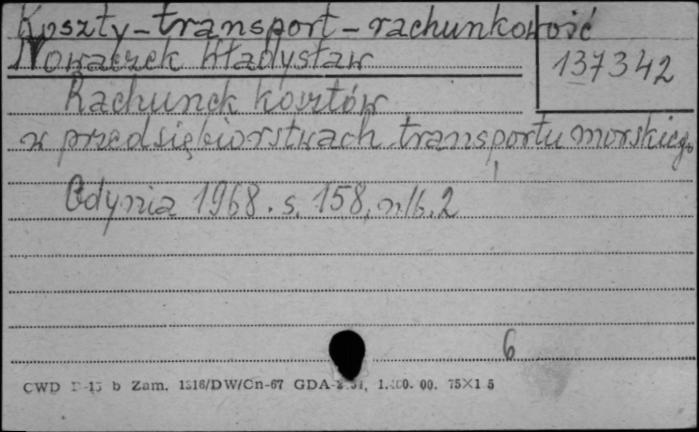 Koszty - transport - rachunkowość
Nowaczek Władysław
137342
Rachunek kosztów
w przedsiębiorstwach transportu morskiego
Gdynia 1968. s. 158, nlb. 2
6
CWD D-15 b Zam. 1316/DW/Cn-67 GDA- 1.400.00. 75X1 5